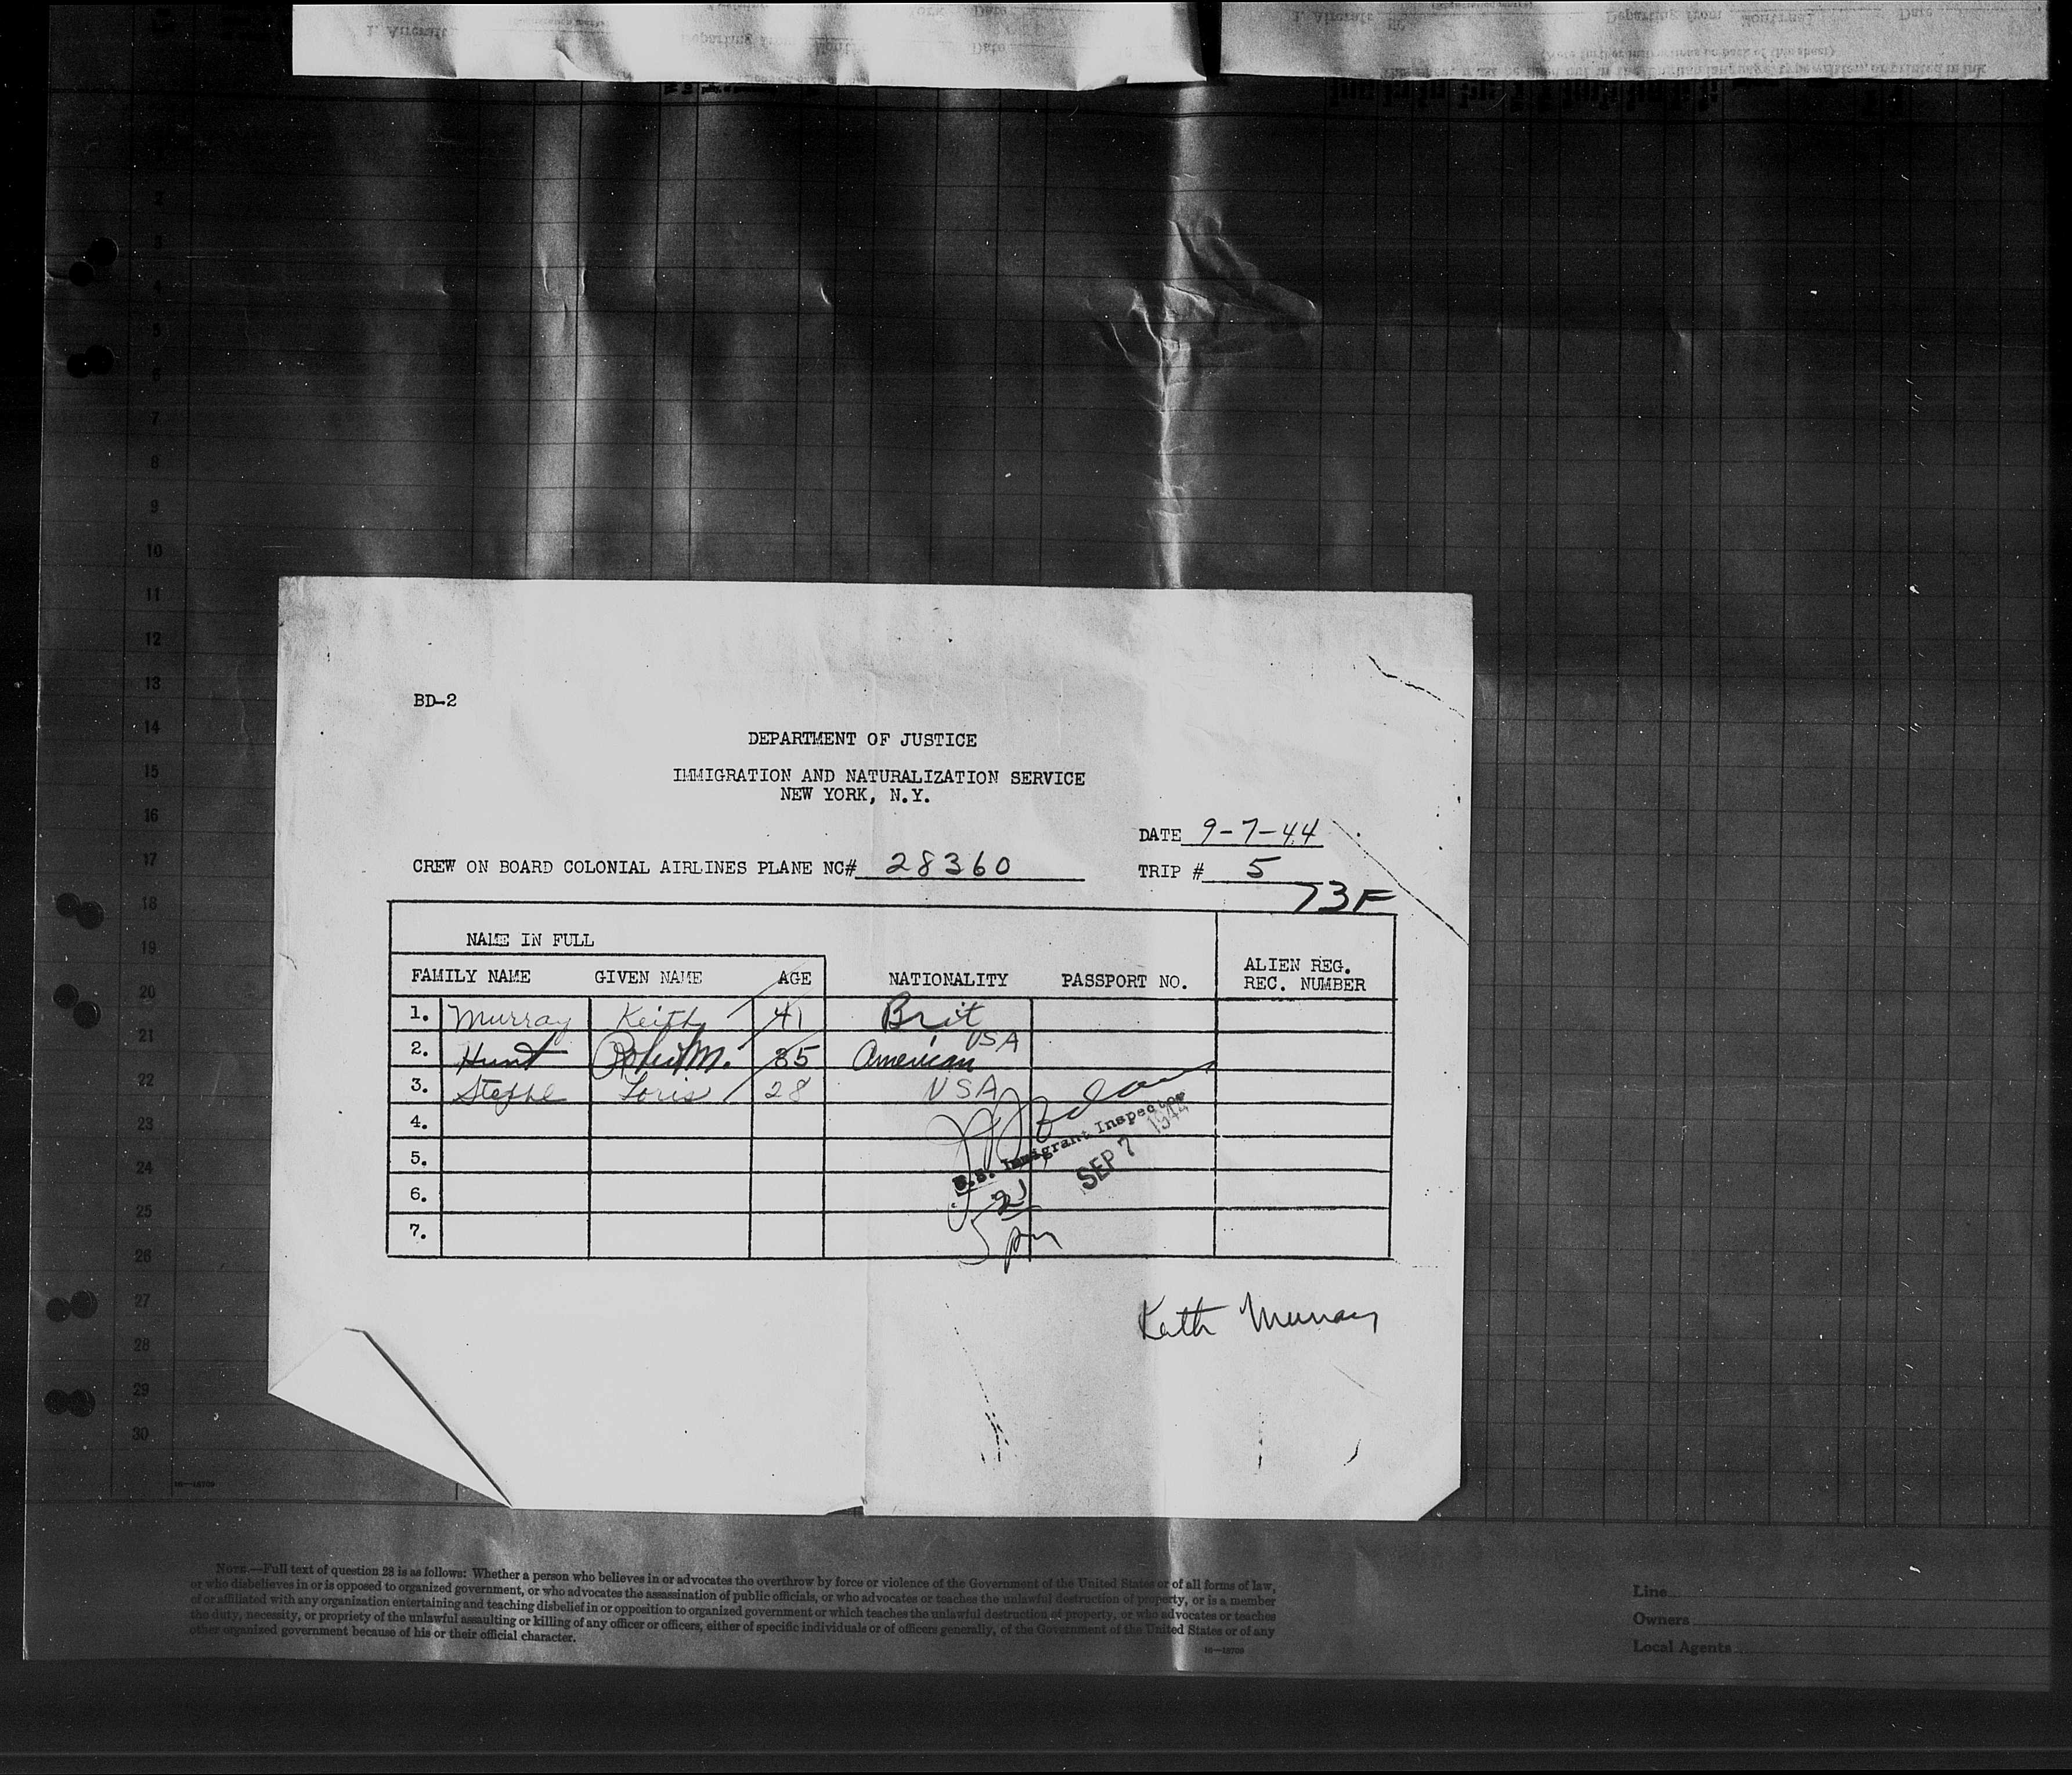 BD-2
DEPARTMENT OF JUSTICE
IMMIGRATION AND NATURALIZATION SERVICE
NEW YORK, N.Y.
DATE 9-7-44
CREW ON BOARD COLONIAL AIRLINES PLANE NC# 28360 TRIP # 5
73F
NAME IN FULL
FAMILY NAME GIVEN NAME AGE NATIONALITY PASSPORT NO. ALIEN REG. REC. NUMBER
1. Murray Keith 41 Brit
USA
2. Hunt Robert M. 35 American
3. Stephe Loris 28 USA
4.
U.S. Immigrant Inspector
5. SEP 7 1944
6.
7. 5 pm
Keith Murray
11
12
13
14
15
16
17
18
19
20
21
22
23
24
25
26
27
28
29
30
NOTE.—Full text of question 28 is as follows: Whether a person who believes in or advocates the overthrow by force or violence of the Government of the United States or of all forms of law,
or who disbelieves in or is opposed to organized government, or who advocates the assassination of public officials, or who advocates or teaches the unlawful destruction of property, or is a member
of or affiliated with any organization entertaining and teaching disbelief in or opposition to organized government or which teaches the unlawful destruction of property, or who advocates or teaches
the duty, necessity, or propriety of the unlawful assaulting or killing of any officer or officers, either of specific individuals or of officers generally, of the Government of the United States or of any
other organized government because of his or their official character.
Line
Owners
Local Agents